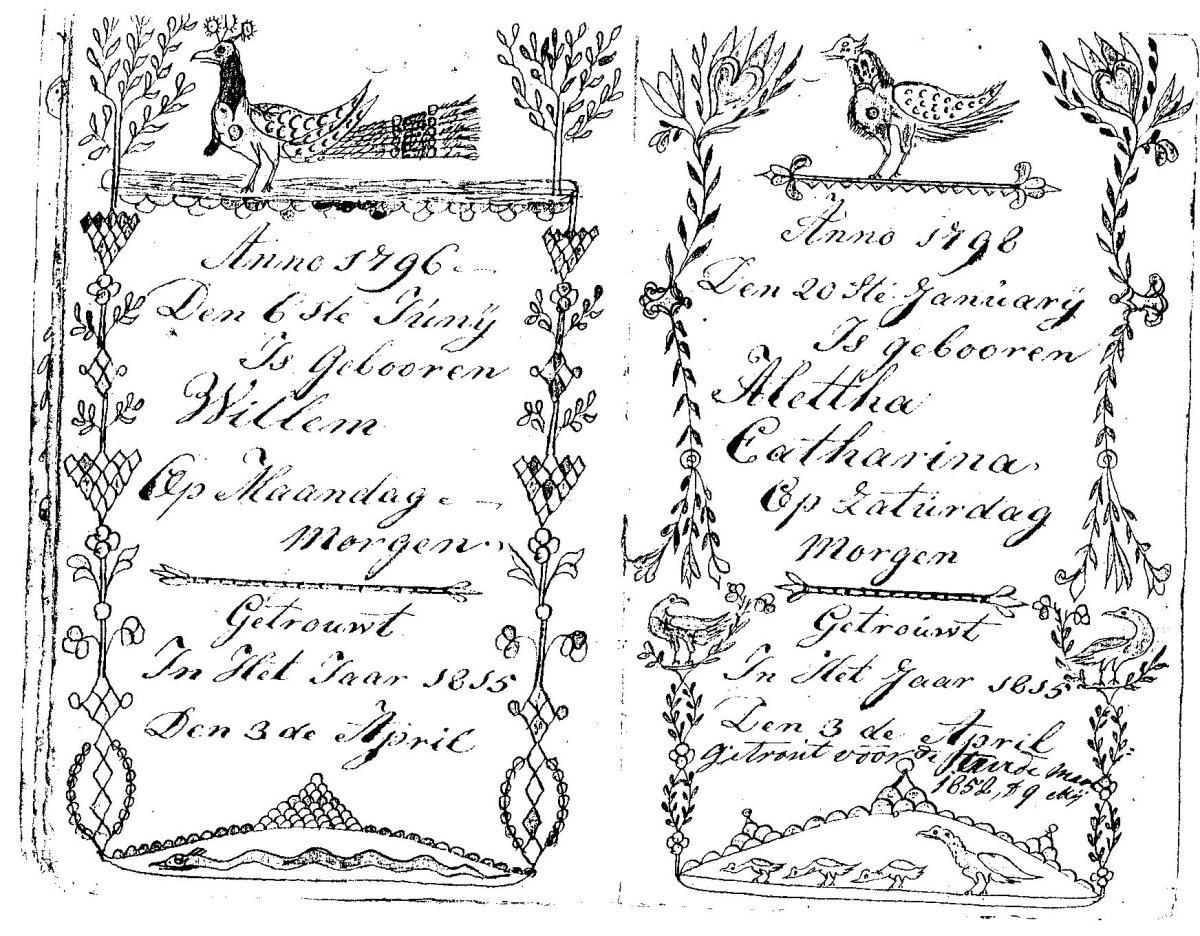 Anno 1796
Den 6 Ste Júnÿ
Is Gebooren
Willem
Op Maandag
Morgen
Getrouwt
In Het Jaar 1815
Den 3 de April
Anno 1798
Den 20 Ste Janúarÿ
Is gebooren
Alettha
Catharina
Op Zatúrdag
Morgen
Getroúwt
In Het Jaar 1815
Den 3 de April
getrout voor de
1852,